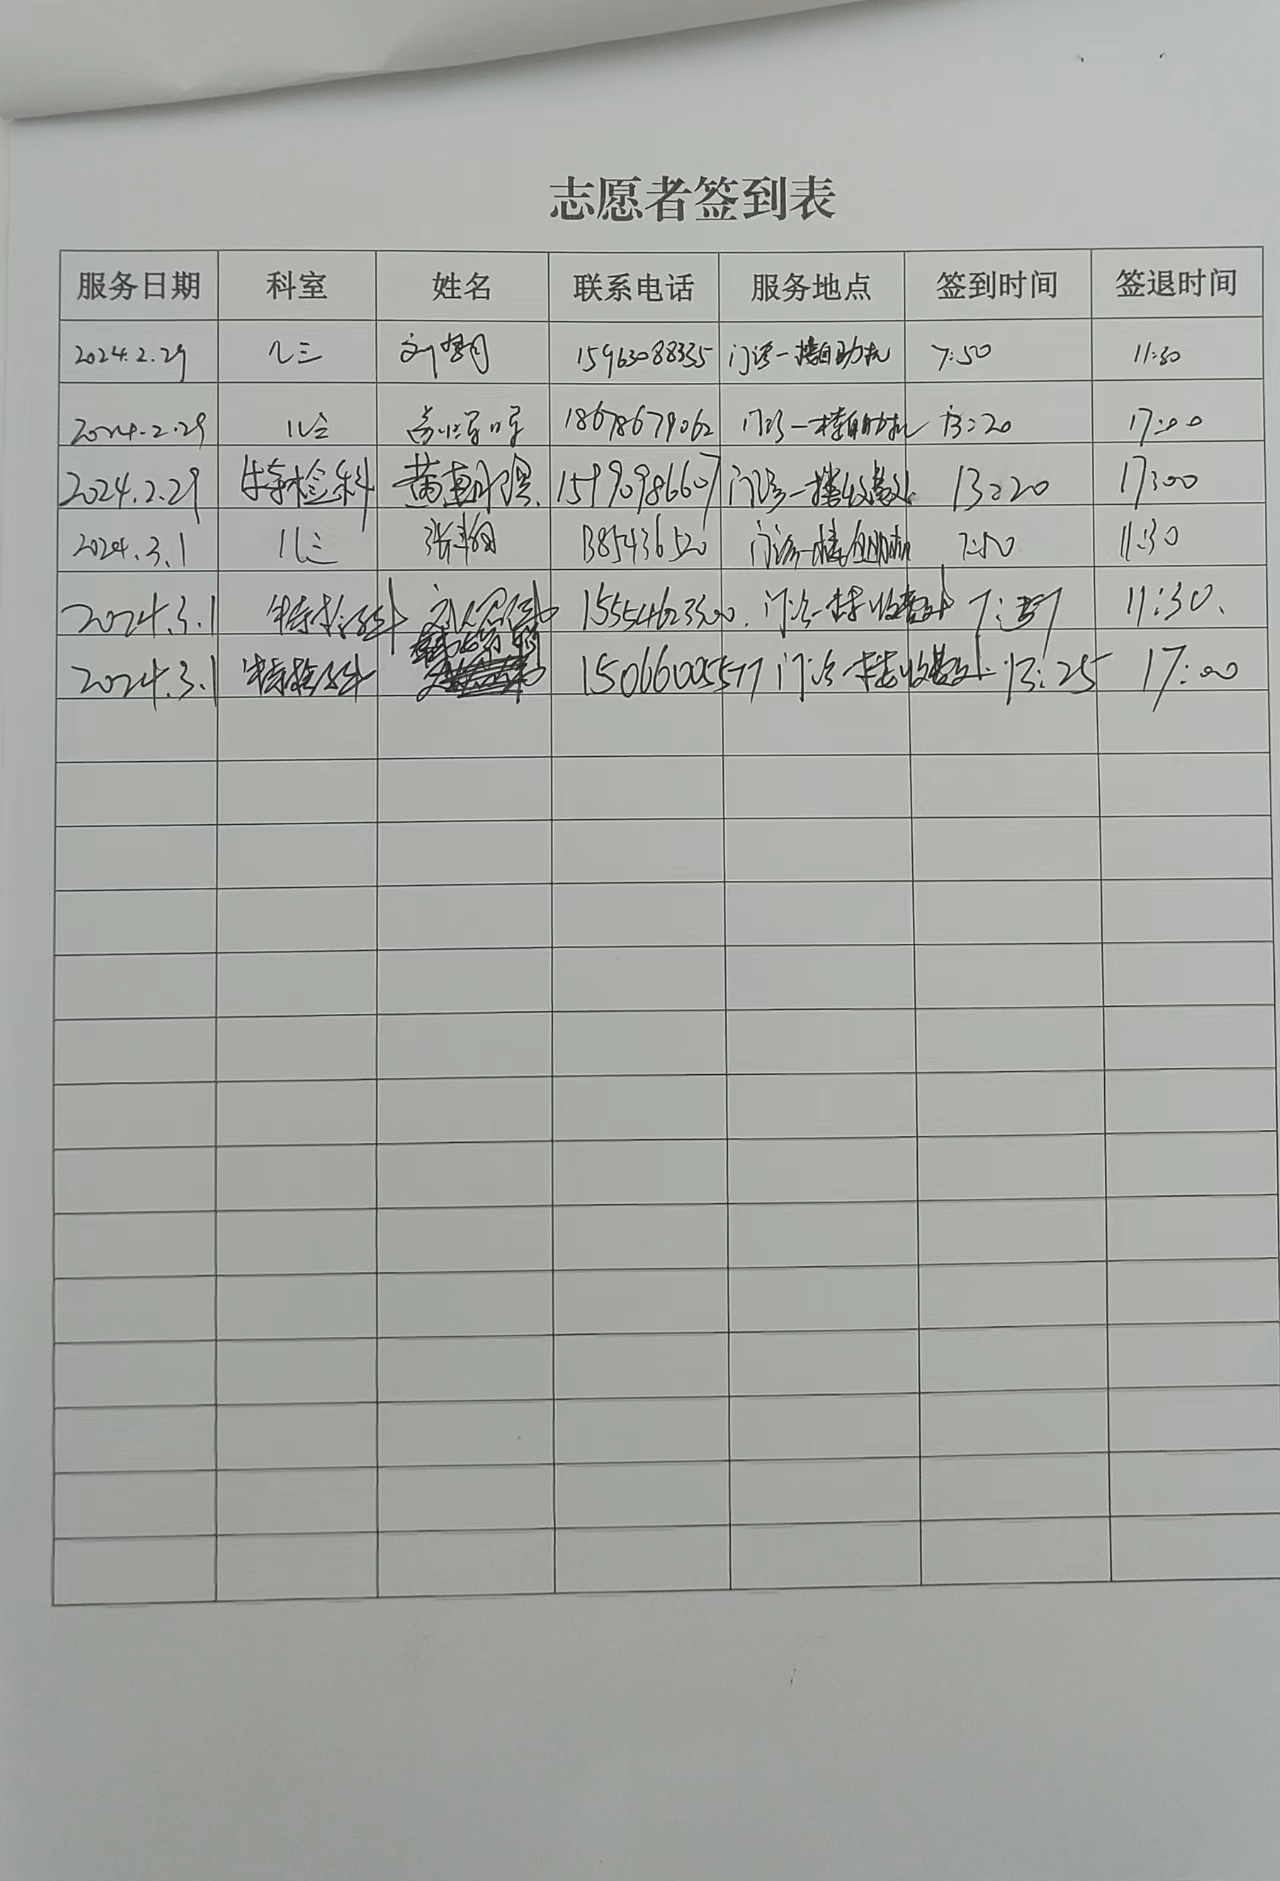 志愿者签到表
服务日期 科室 姓名 联系电话 服务地点 签到时间 签退时间
2024.2.29 儿三 刘 15963088335 门诊一楼自助机 7:50 11:30
2024.2.29 儿三 18678679062 门诊一楼自助机 13:20 17:00
2024.2.29 特检科 黄 15990986607 门诊一楼收费处 13:20 17:00
2024.3.1 儿三 张翔 门诊一楼自助机 7:50 11:30
2024.3.1 特检科 刘 15554623300 门诊一楼收费处 11:30
2024.3.1 特检科 15066005577 门诊一楼收费处 13:25 17:00